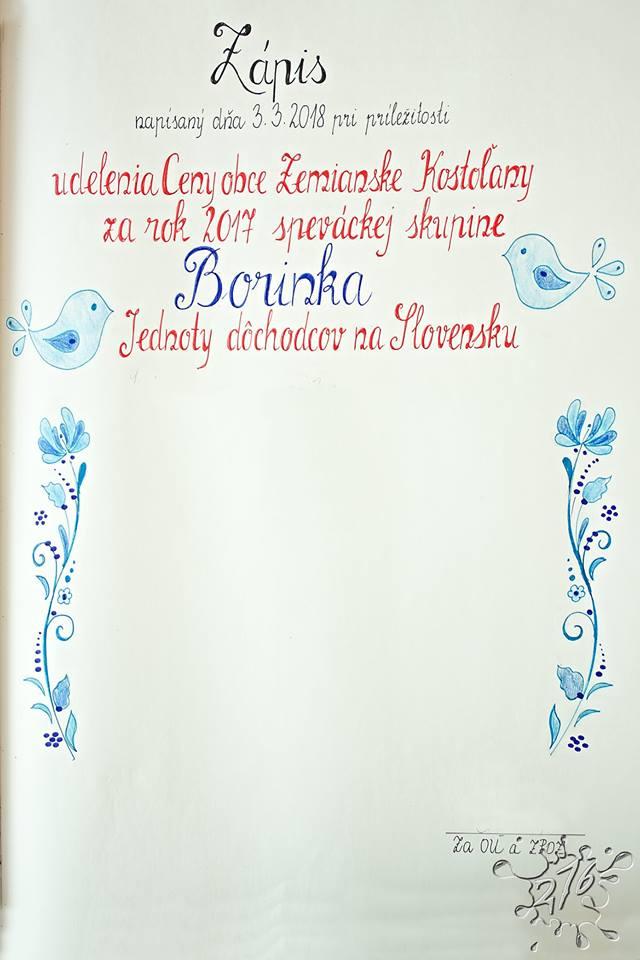 Zápis
napísaný dňa 3.3.2018 pri príležitosti
udelenia Ceny obce Zemianske Kostoľany
za rok 2017 speváckej skupine
Borinka
Jednoty dôchodcov na Slovensku
Za OÚ a ZPOZ
216